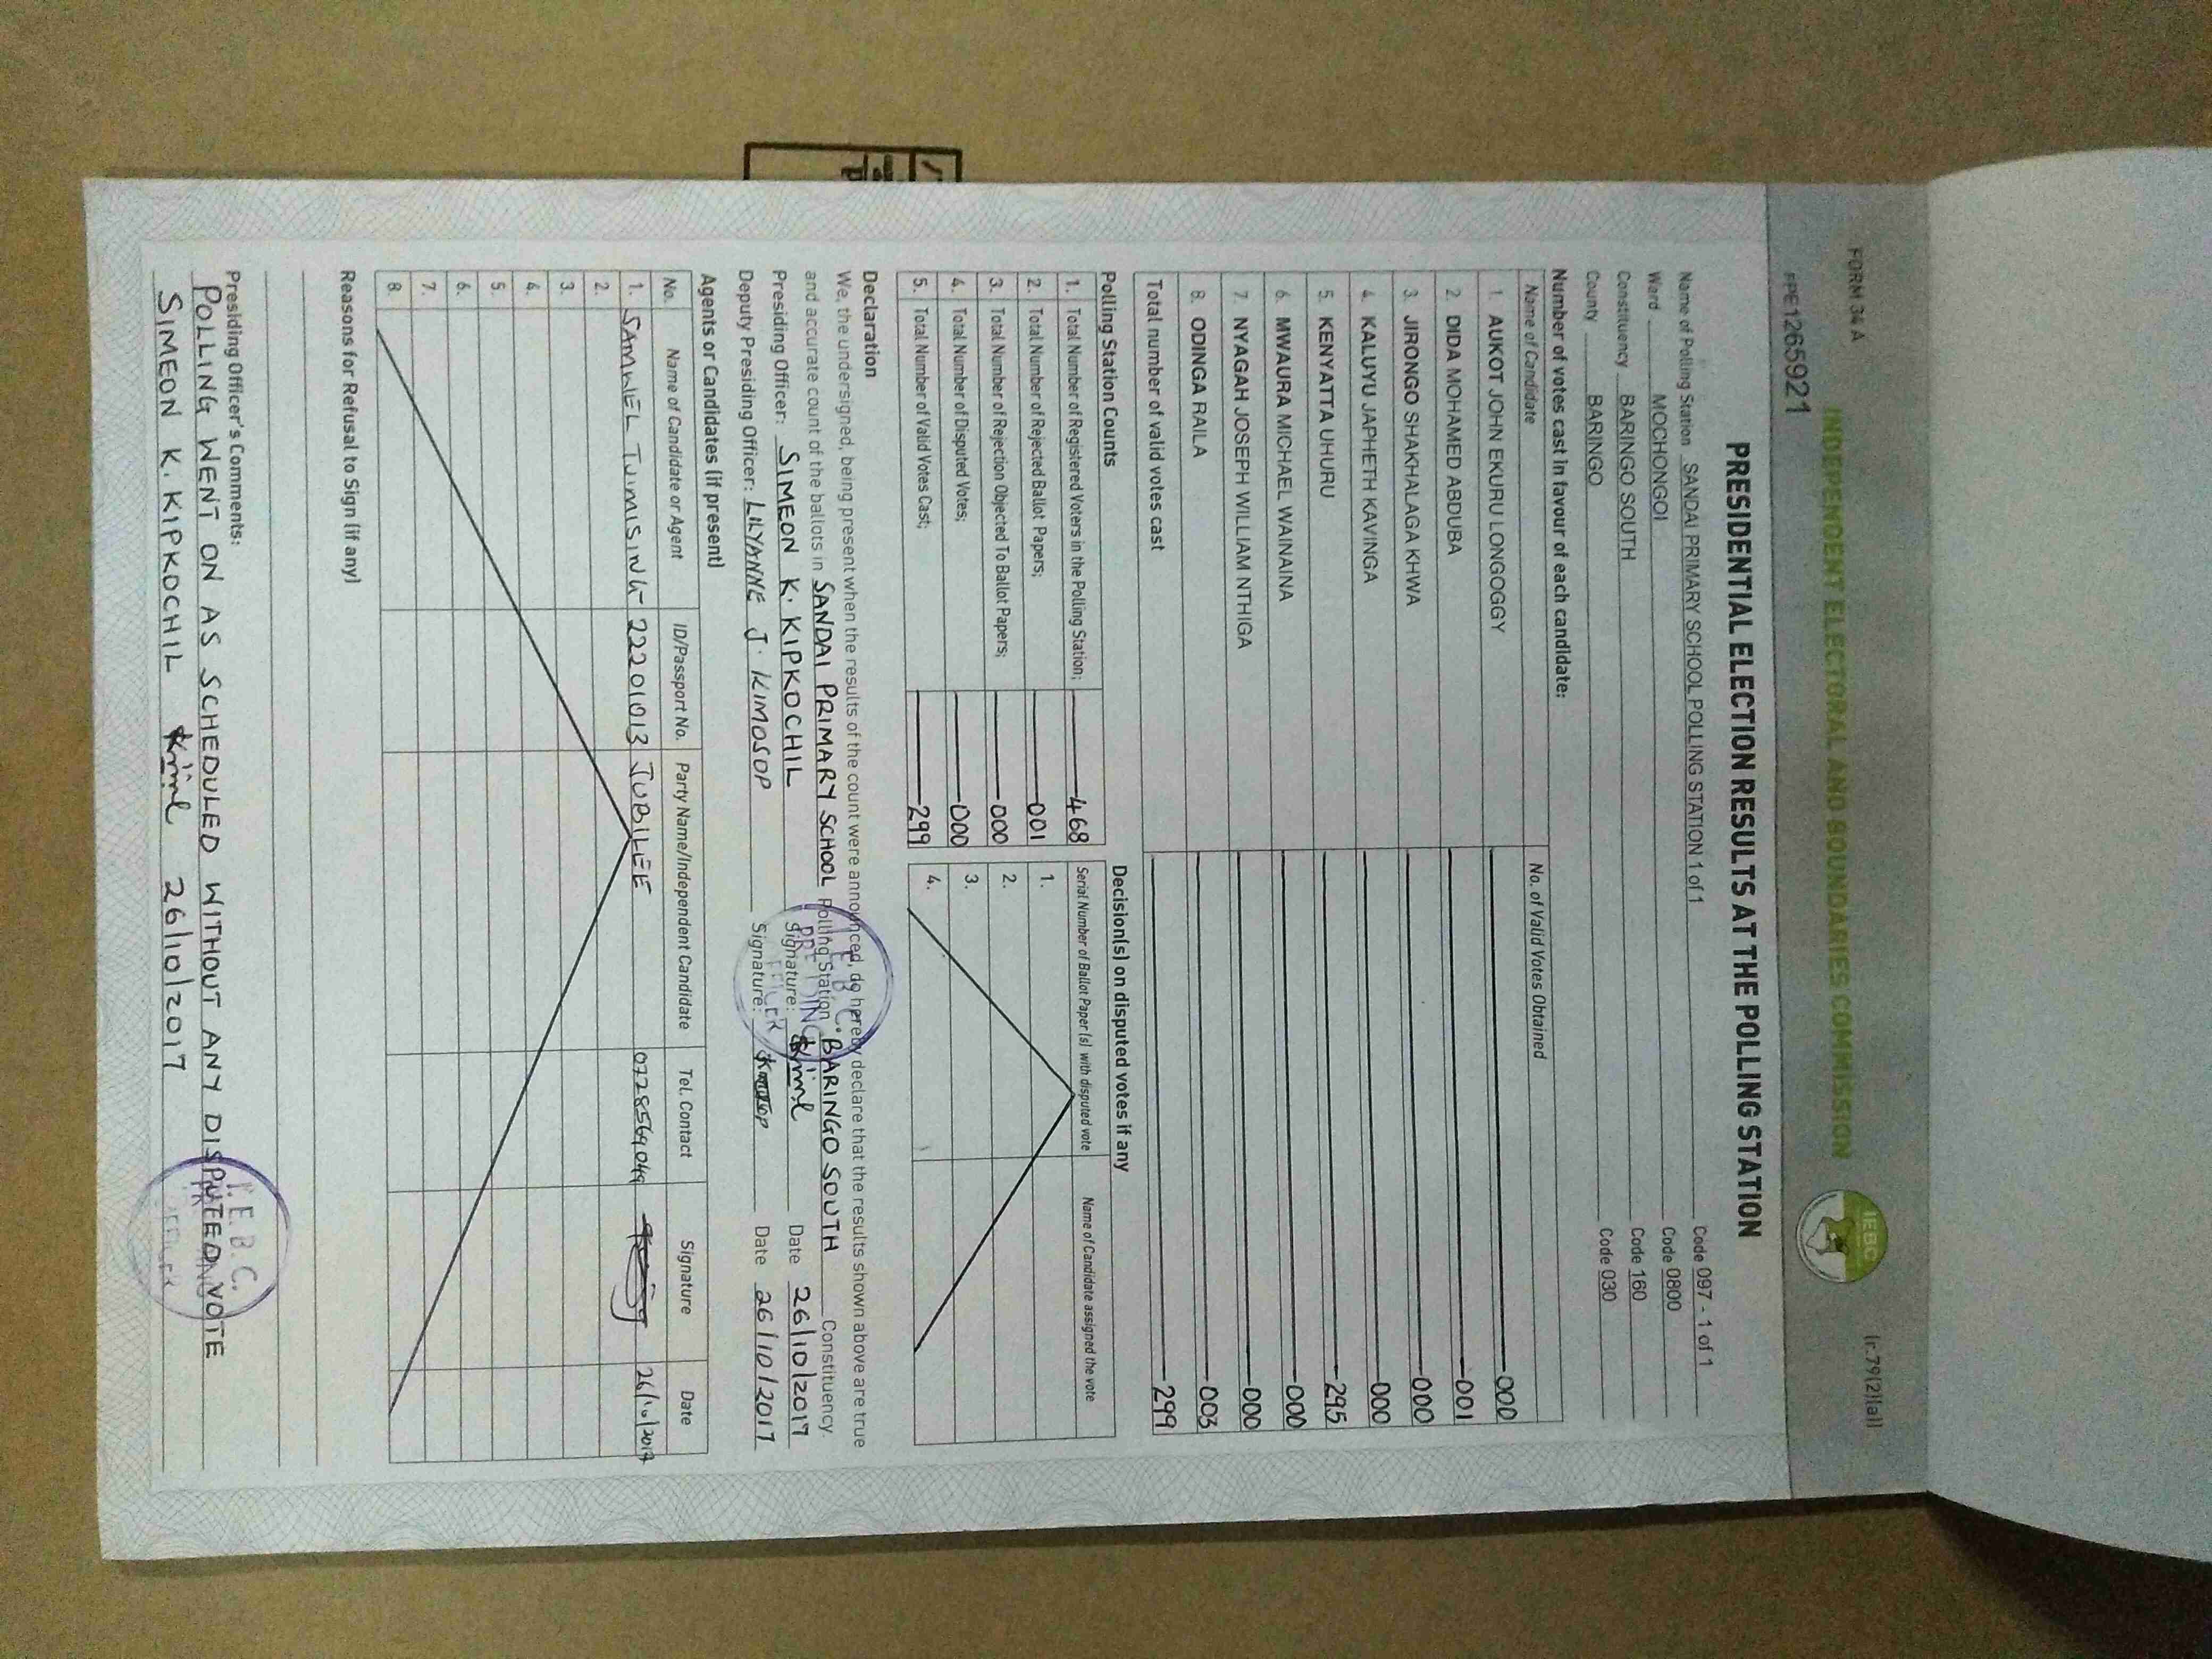 FORM 34 A
(r.79(2)(a))
INDEPENDENT ELECTORAL AND BOUNDARIES COMMISSION
IEBC
PPE1265921
PRESIDENTIAL ELECTION RESULTS AT THE POLLING STATION
Name of Polling Station SANDAI PRIMARY SCHOOL POLLING STATION 1 of 1 Code 097 - 1 of 1
Ward MOCHONGOI Code 0800
Constituency BARINGO SOUTH Code 160
County BARINGO Code 030
Number of votes cast in favour of each candidate:
Name of Candidate No. of Valid Votes Obtained
1. AUKOT JOHN EKURU LONGOGGY 000
2. DIDA MOHAMED ABDUBA 001
3. JIRONGO SHAKHALAGA KHWA 000
4. KALUYU JAPHETH KAVINGA 000
5. KENYATTA UHURU 295
6. MWAURA MICHAEL WAINAINA 000
7. NYAGAH JOSEPH WILLIAM NTHIGA 000
8. ODINGA RAILA 003
Total number of valid votes cast 299
Polling Station Counts
1. Total Number of Registered Voters in the Polling Station; 468
2. Total Number of Rejected Ballot Papers; 001
3. Total Number of Rejection Objected To Ballot Papers; 000
4. Total Number of Disputed Votes; 000
5. Total Number of Valid Votes Cast; 299
Decision(s) on disputed votes if any
Serial Number of Ballot Paper(s) with disputed vote Name of Candidate assigned the vote
1.
2.
3.
4.
Declaration
We, the undersigned, being present when the results of the count were announced, do hereby declare that the results shown above are true
and accurate count of the ballots in SANDAI PRIMARY SCHOOL Polling Station BARINGO SOUTH Constituency.
Presiding Officer: SIMEON K. KIPKOCHIL Signature: Date 26/10/2017
Deputy Presiding Officer: LILYANNE J. KIMOSOP Signature: Date 26/10/2017
Agents or Candidates (if present)
No. Name of Candidate or Agent ID/Passport No. Party Name/Independent Candidate Tel. Contact Signature Date
1. SAMWEL TUIMISING 22201013 JUBILEE 0728569049 26/10/2017
2.
3.
4.
5.
6.
7.
8.
Reasons for Refusal to Sign (if any)
Presiding Officer's Comments:
POLLING WENT ON AS SCHEDULED WITHOUT ANY DISPUTED VOTE
SIMEON K. KIPKOCHIL 26/10/2017
I.E.B.C.